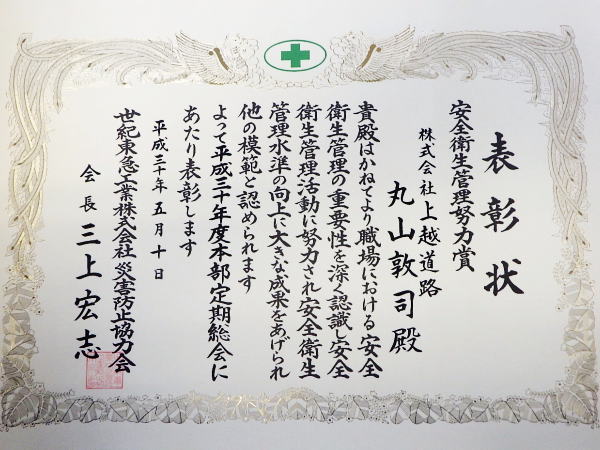 表彰状
安全衛生管理努力賞
株式会社上越道路
丸山敦司殿
貴殿はかねてより職場における安全
衛生管理の重要性を深く認識し安全
衛生管理活動に努力され安全衛生
管理水準の向上に大きな成果をあげられ
他の模範と認められます
よって平成三十年度本部定期総会に
あたり表彰します
平成三十年五月十日
世紀東急工業株式会社災害防止協力会
会長三上宏志